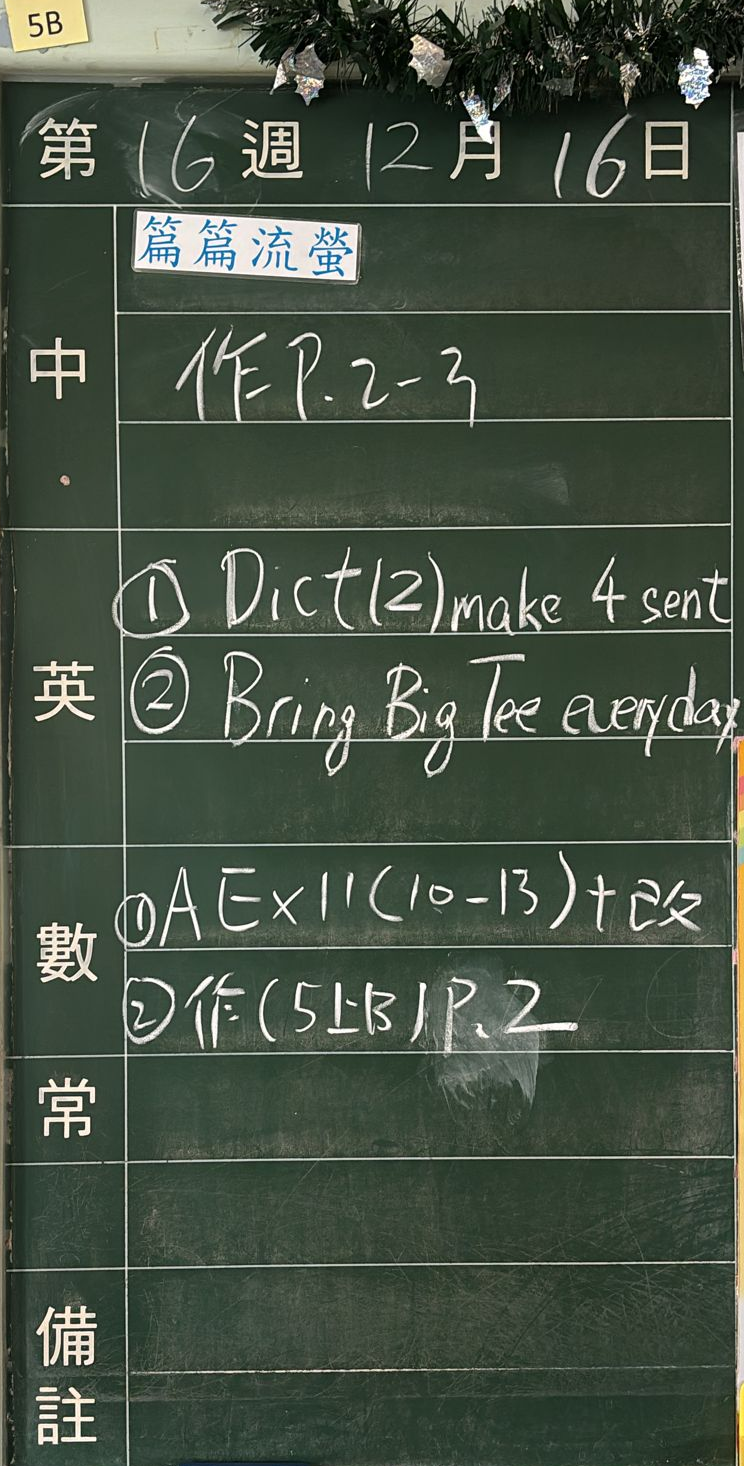 5B
第 16 週 12 月 16 日
中
篇篇流螢
作 P.2-3
英
① Dict(2) make 4 sent
② Bring Big Tee everyday
數
① A Ex 11 (10-13) + 改
② 作 (5上B) P.2
常
備註